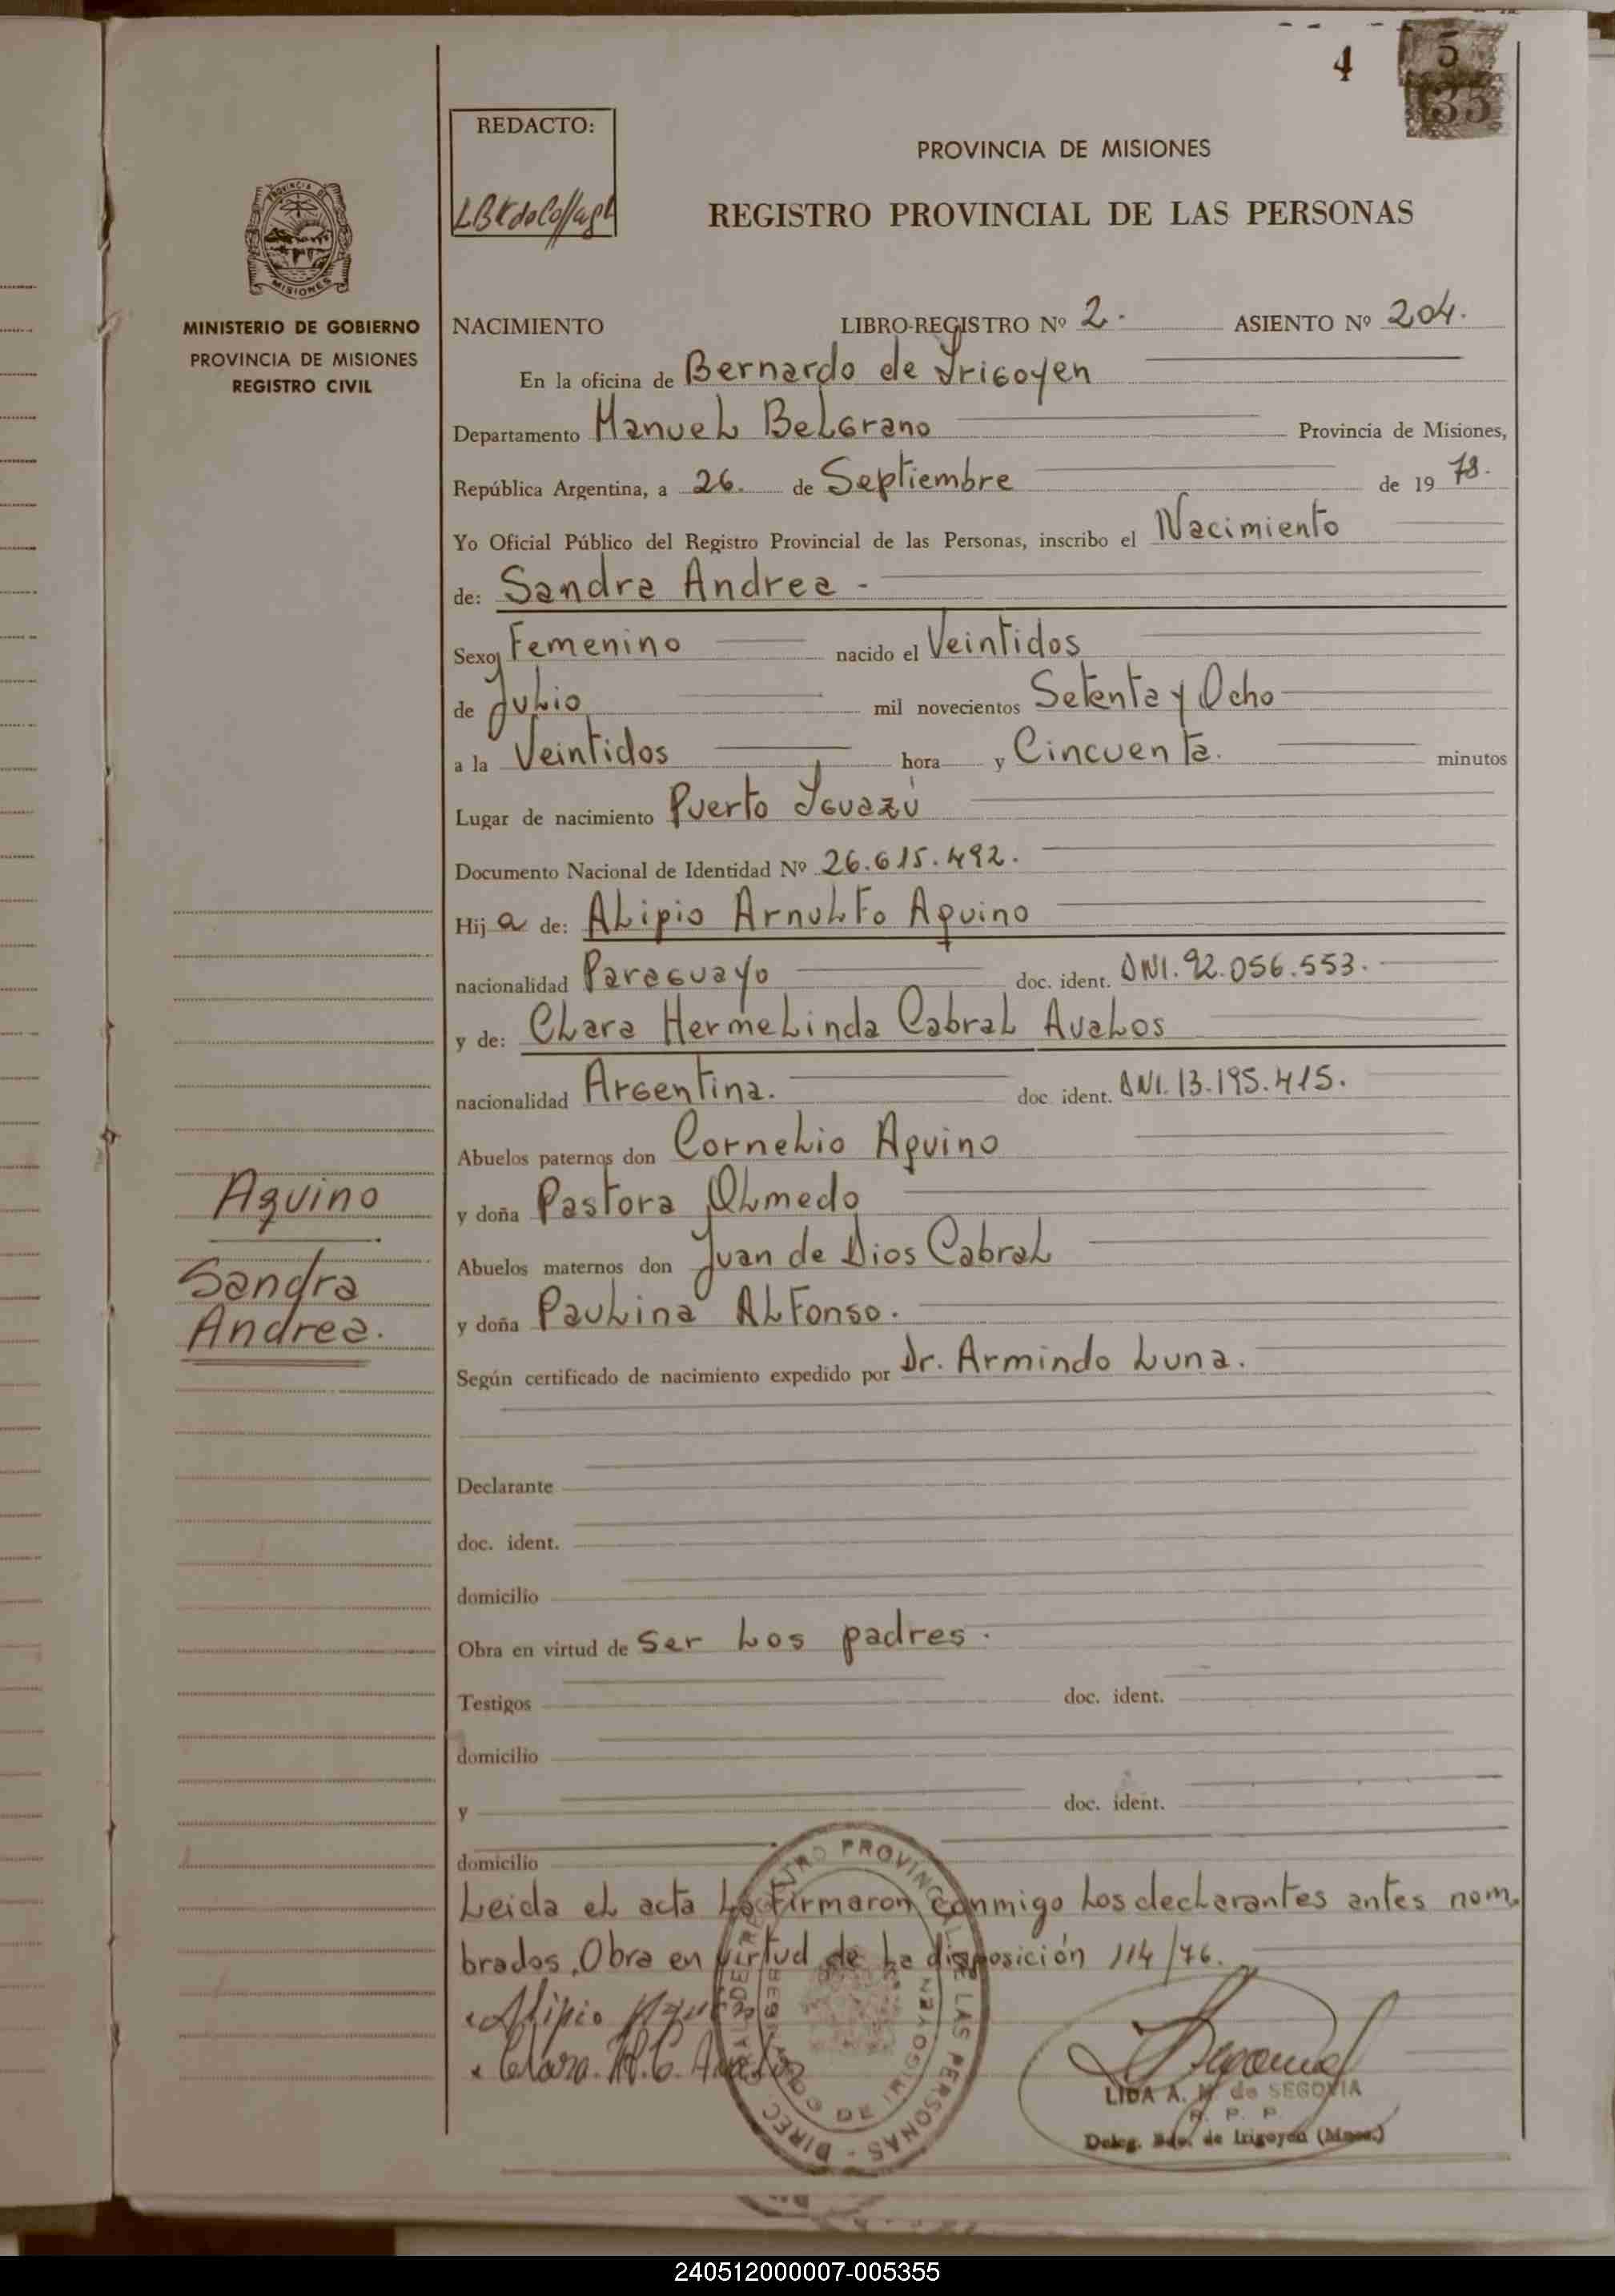 4
5
35
REDACTO:
PROVINCIA DE MISIONES
REGISTRO PROVINCIAL DE LAS PERSONAS
MISIONES
MINISTERIO DE GOBIERNO
PROVINCIA DE MISIONES
REGISTRO CIVIL
NACIMIENTO LIBRO-REGISTRO Nº 2. ASIENTO Nº 204.
En la oficina de Bernardo de Irigoyen
Departamento Manuel Belgrano Provincia de Misiones,
República Argentina, a 26. de Septiembre de 19 78.
Yo Oficial Público del Registro Provincial de las Personas, inscribo el Nacimiento
de: Sandra Andrea -
Sexo Femenino nacido el Veintidos
de Julio mil novecientos Setenta y Ocho
a la Veintidos hora y Cincuenta. minutos
Lugar de nacimiento Puerto Iguazú
Documento Nacional de Identidad Nº 26.615.492.
Hija de: Alipio Arnulfo Aquino
nacionalidad Paraguayo doc. ident. DNI. 92.056.553.
y de: Clara Hermelinda Cabral Avalos
nacionalidad Argentina. doc. ident. DNI. 13.195.415.
Abuelos paternos don Cornelio Aquino
y doña Pastora Olmedo
Abuelos maternos don Juan de Dios Cabral
y doña Paulina Alfonso.
Según certificado de nacimiento expedido por Dr. Armindo Luna.
Aquino
Sandra
Andrea.
Declarante
doc. ident.
domicilio
Obra en virtud de ser los padres.
Testigos doc. ident.
domicilio
y doc. ident.
domicilio
Leida el acta la firmaron conmigo los declarantes antes nom
brados. Obra en virtud de la disposición 114/76.
Alipio Aquino
Clara. H. C. Avalos
LIDA A. de SEGOVIA
R. P. P
Deleg. Bdo. de Irigoyen (Mnes.)
240512000007-005355